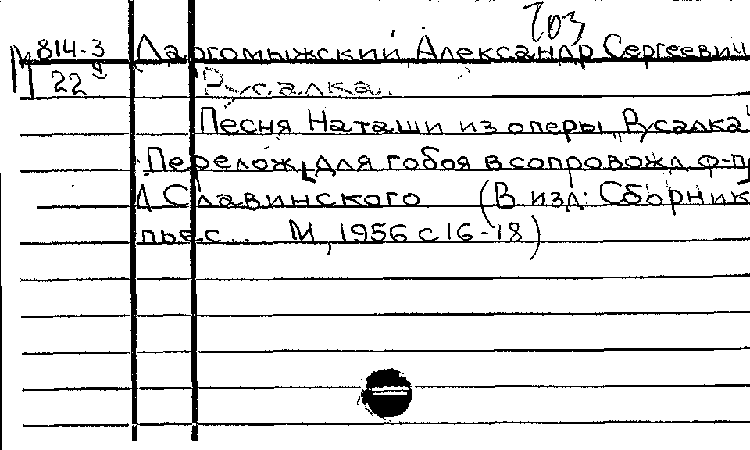 Гоз
М 814-3 Даргомыжский, Александр Сергеевич
22 Русалка.
Песня Наташи из оперы "Русалка"
Перелож. для гобоя в сопровожд. ф-п
Славинского (В изд: Сборник
пьес... М, 1956 с 16-18)